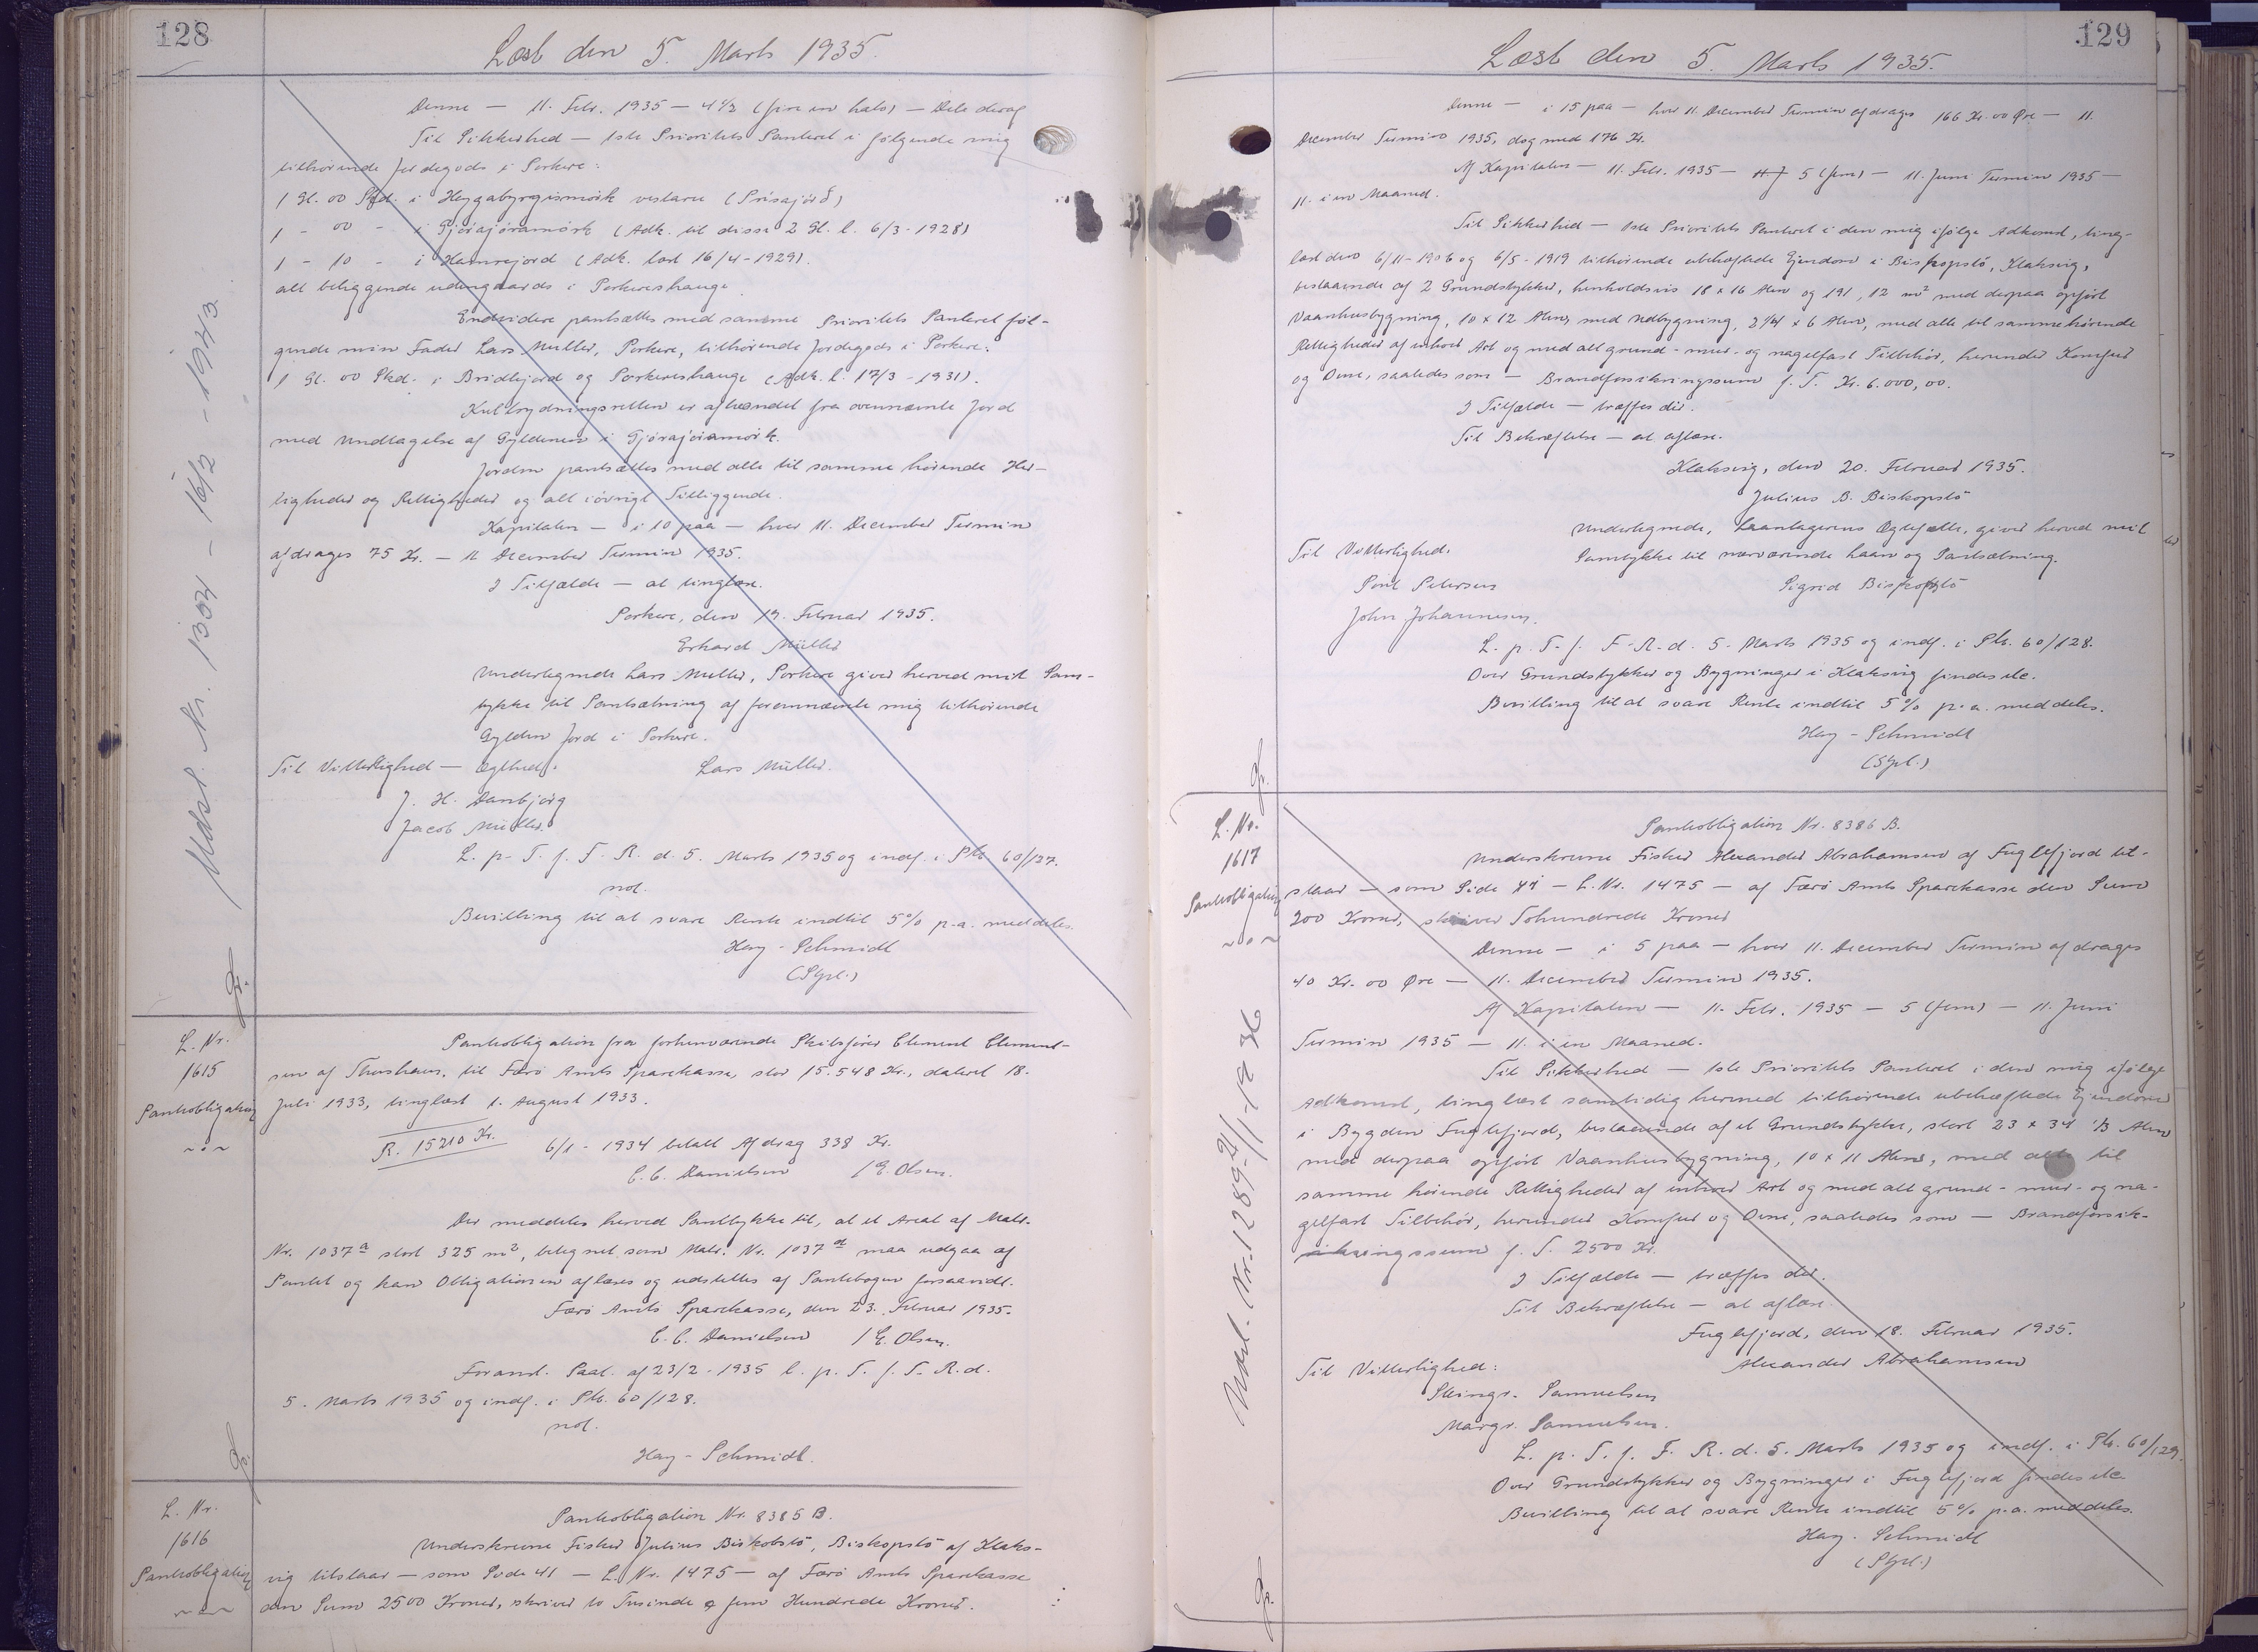 128
Læst den 5. Marts 1935.
Denne — 11. Febr. 1935 — 4 1/2 (fire en halv) — Dele deraf
Til Sikkerhed — 1ste Prioritets Panteret i følgende mig
tilhørende Jordegods i Porkere:
1 Gl. 00 Skd. i Heygabyrgismørk vestara
1 - 00 - i Gjórajóramørk (Adk. til disse 2 Gl. l. 6/3-1928)
1 - 10 - i Hamrejord (Adk. læst 16/4-1929).
alt beliggende udengaards i Porkereshauge.
Endvidere pantsættes med samme Prioritets Panteret føl-
gende min Fader Lars Müller, Porkere, tilhørende Jordegods i Porkere:
1 Gl. 00 Skd. i Bridlejord og Porkereshauge (Adk. l. 17/3-1931).
Kulbrydningsretten er afhændet fra ovennævnte Jord
med Undtagelse af Gyldenen i Gjórajóramørk.
Jorden pantsættes med alle til samme hørende Her-
ligheder og Rettigheder og alt iøvrigt Tilliggende.
Kapitalen — i 10 paa — hver 11. December Termin
afdrages 75 Kr. — 11 December Termin 1935.
I Tilfælde — at tinglæse.
Porkere, den 19. Februar 1935.
Erhard Müller
Undertegnede Lars Müller, Porkere giver herved mit Sam-
tykke til Pantsætning af forannævnte mig tilhørende
Gylden Jord i Porkere.
Til Vitterlighed — Ægthed: Lars Müller.
J. H. Danbjørg
Jacob Müller.
L. p. T. f. F. R. d. 5. Marts 1935 og indf. i Ptb. 60/127.
not.
Bevilling til at svare Rente indtil 5% p.a. meddeles.
Hay-Schmidt
(Spl.)
Udsl. Nr. 1304 - 16/2 - 1943.
L. Nr.
1615
Pantobligation
Pantobligation fra forhenværende Skibsfører Clement Clement-
sen af Thorshavn, til Færø Amts Sparekasse, stor 15.548 Kr., dateret 18.
Juli 1933, tinglæst 1. August 1933.
R. 15210 Kr.
6/1-1934 betalt Afdrag 338 Kr.
C. C. Danielsen / E. Olsen.
Der meddeles herved Samtykke til, at et Areal af Matr.
Nr. 1037 a stort 325 m², betegnet som Matr. Nr. 1037 d maa udgaa af
Pantet og kan Obligationen aflæses og udslettes af Pantebogen forsaavidt.
Færø Amts Sparekasse, den 23. Februar 1935.
C. C. Danielsen / E. Olsen.
Forand. Paat. af 23/2-1935 l. p. T. f. F. R. d.
5. Marts 1935 og indf. i Ptb. 60/128.
not.
Hay-Schmidt.
L. Nr.
1616
Pantobligation
Pantobligation Nr. 8385 B.
Underskrevne Fisker Julius Biskobstø, Biskopstø af Klaks-
vig tilstaar — som Side 41 — L. Nr. 1475 — af Færø Amts Sparekasse
den Sum 2500 Kroner, skriver to Tusinde og fem Hundrede Kroner.
129
Læst den 5. Marts 1935.
Denne — i 15 paa — hver 11. December Termin afdrages 166 Kr. 00 Øre — 11.
December Termin 1935, dog med 176 Kr.
Af Kapitalen — 11. Febr. 1935 — 5 (fem) — 11. Juni Termin 1935 —
11. i en Maaned.
Til Sikkerhed — 1ste Prioritets Panteret i den mig ifølge Adkomst, ting-
læst den 6/11-1906 og 6/5-1919 tilhørende ubehæftede Ejendom i Biskopstø, Klaksvig,
bestaaende af 2 Grundstykker, henholdsvis 18 x 16 Alen og 191,12 m² med derpaa opført
Vaanhusbygning, 10 x 12 Alen, med Udbygning, 2 1/4 x 6 Alen, med alle til samme hørende
Rettigheder af enhver Art og med alt grund- mur- og nagelfast Tilbehør, herunder Komfur
og Ovne, saaledes som — Brandforsikringssum f. T. Kr. 6.000,00.
I Tilfælde — træffes der.
Til Bekræftelse — at aflæse.
Klaksvig, den 20. Februar 1935.
Julius B. Biskopstø
Undertegnede, Laantagerens Ægtefælle, giver herved mit
Til Vitterlighed: Samtykke til nærværende Laan og Pantsætning.
Poul Petersen Sigrid Biskopstø
John Johannesen.
L. p. T. f. F. R. d. 5. Marts 1935 og indf. i Ptb. 60/128.
Over Grundstykker og Bygninger i Klaksvig findes etc.
Bevilling til at svare Rente indtil 5% p.a. meddeles.
Hay-Schmidt
(Spl.)
L. Nr.
1617
Pantobligation
Pantobligation Nr. 8386 B.
Underskrevne Fisker Alexander Abrahamsen af Fuglefjord til-
staar — som Side 41 — L. Nr. 1475 — af Færø Amts Sparekasse den Sum
200 Kroner, skriver Tohundrede Kroner
Denne — i 5 paa — hver 11. December Termin afdrages
40 Kr. 00 Øre — 11. December Termin 1935.
Af Kapitalen — 11. Febr. 1935 — 5 (fem) — 11. Juni
Termin 1935 — 11. i en Maaned.
Til Sikkerhed — 1ste Prioritets Panteret i den mig ifølge
Adkomst, tinglæst samtidig hermed tilhørende ubehæftede Ejendom
i Bygden Fuglefjord, bestaaende af et Grundstykke, stort 23 x 34 1/3 Alen
med derpaa opført Vaanhusbygning, 10 x 11 Alen, med alle til
samme hørende Rettigheder af enhver Art og med alt grund- mur- og na-
gelfast Tilbehør, herunder Komfur og Ovne, saaledes som — Brandforsik-
ringssum f. T. 2500 Kr.
I Tilfælde — træffes der.
Til Bekræftelse — at aflæse.
Fuglefjord, den 18. Februar 1935.
Til Vitterlighed: Alexander Abrahamsen
Samuelsen
Margr. Samuelsen.
L. p. T. f. F. R. d. 5. Marts 1935 og indf. i Ptb. 60/129.
Over Grundstykker og Bygninger i Fuglefjord findes etc.
Bevilling til at svare Rente indtil 5% p.a. meddeles.
Hay-Schmidt
(Spl.)
Udsl. Nr. 1289 - 21/1 - 1936